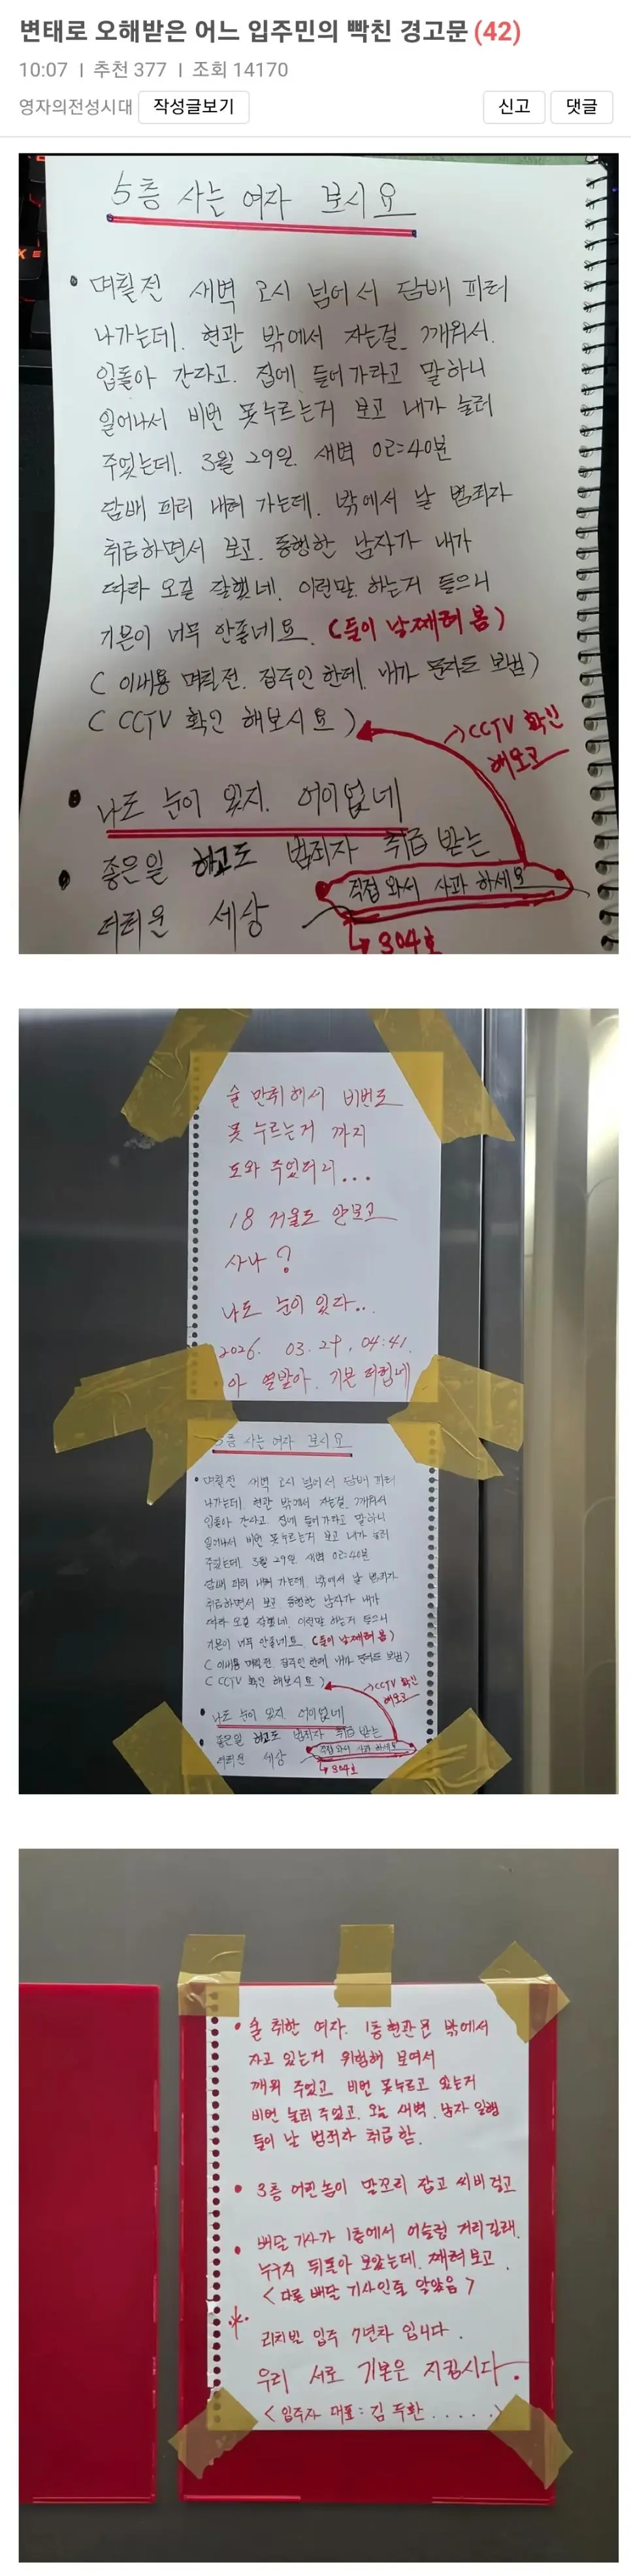 변태로 오해받은 어느 입주민의 빡친 경고문 (42)
10:07 | 추천 377 | 조회 14170
영자의전성시대 작성글보기 신고 댓글
5층 사는 여자 보시요
• 며칠전 새벽 2시 넘어서 담배 피러
나가는데. 현관 밖에서 자는걸 깨워서.
입돌아 간다고. 집에 들어가라고 말하니
일어나서 비번 못누르는거 보고 내가 눌러
주었는데. 3월 29일. 새벽 02:40분
담배 피러 내려 가는데. 밖에서 날 범죄자
취급하면서 보고. 동행한 남자가 내가
따라 오길 잘했네. 이런말 하는거 들으니
기분이 너무 안좋네요. (둘이 날째려 봄)
( 이내용 며칠전. 집주인 한테. 내가 문자도 보냄)
( CCTV 확인 해보시요)
→CCTV 확인
해보고
• 나도 눈이 있지. 어이없네
• 좋은일 하고도 범죄자 취급 받는
더러운 세상
직접 와서 사과 하세요
↳304호
술 만취해서 비번도
못 누르는거 까지
도와 주었더니...
18 거울도 안보고
사나?
나도 눈이 있다..
2026. 03. 29. 04:41.
아 열받아. 기분 더럽네
5층 사는 여자 보시요
• 며칠전 새벽 2시 넘어서 담배 피러
나가는데. 현관 밖에서 자는걸 깨워서
입돌아 간다고. 집에 들어가라고 말하니
일어나서 비번 못누르는거 보고 내가 눌러
주었는데. 3월 29일. 새벽 02:40분
담배 피러 내려 가는데. 밖에서 날 범죄자
취급하면서 보고. 동행한 남자가 내가
따라 오길 잘했네. 이런말 하는거 들으니
기분이 너무 안좋네요. (둘이 날째려 봄)
( 이내용 며칠전. 집주인 한테. 내가 문자도 보냄)
( CCTV 확인 해보시요)
→CCTV 확인
해보고
• 나도 눈이 있지. 어이없네
• 좋은일 하고도 범죄자 취급 받는
더러운 세상
직접 와서 사과 하세요
↳304호
• 술 취한 여자. 1층현관문 밖에서
자고 있는거 위험해 보여서
깨워 주었고 비번 못누르고 있는거
비번 눌러 주었고. 오늘 새벽. 남자 일행
들이 날 범죄자 취급함.
• 3층 어린놈이 말꼬리 잡고 씨비 걸고
• 배달 기사가 1층에서 어슬렁 거리길래.
누구지 뒤돌아 보았는데. 째려보고.
<다른 배달 기사인줄 알았음>
* 리치빌 입주 7년차 입니다.
우리 서로 기본은 지킵시다.
<입주자 대표: 김두환......>